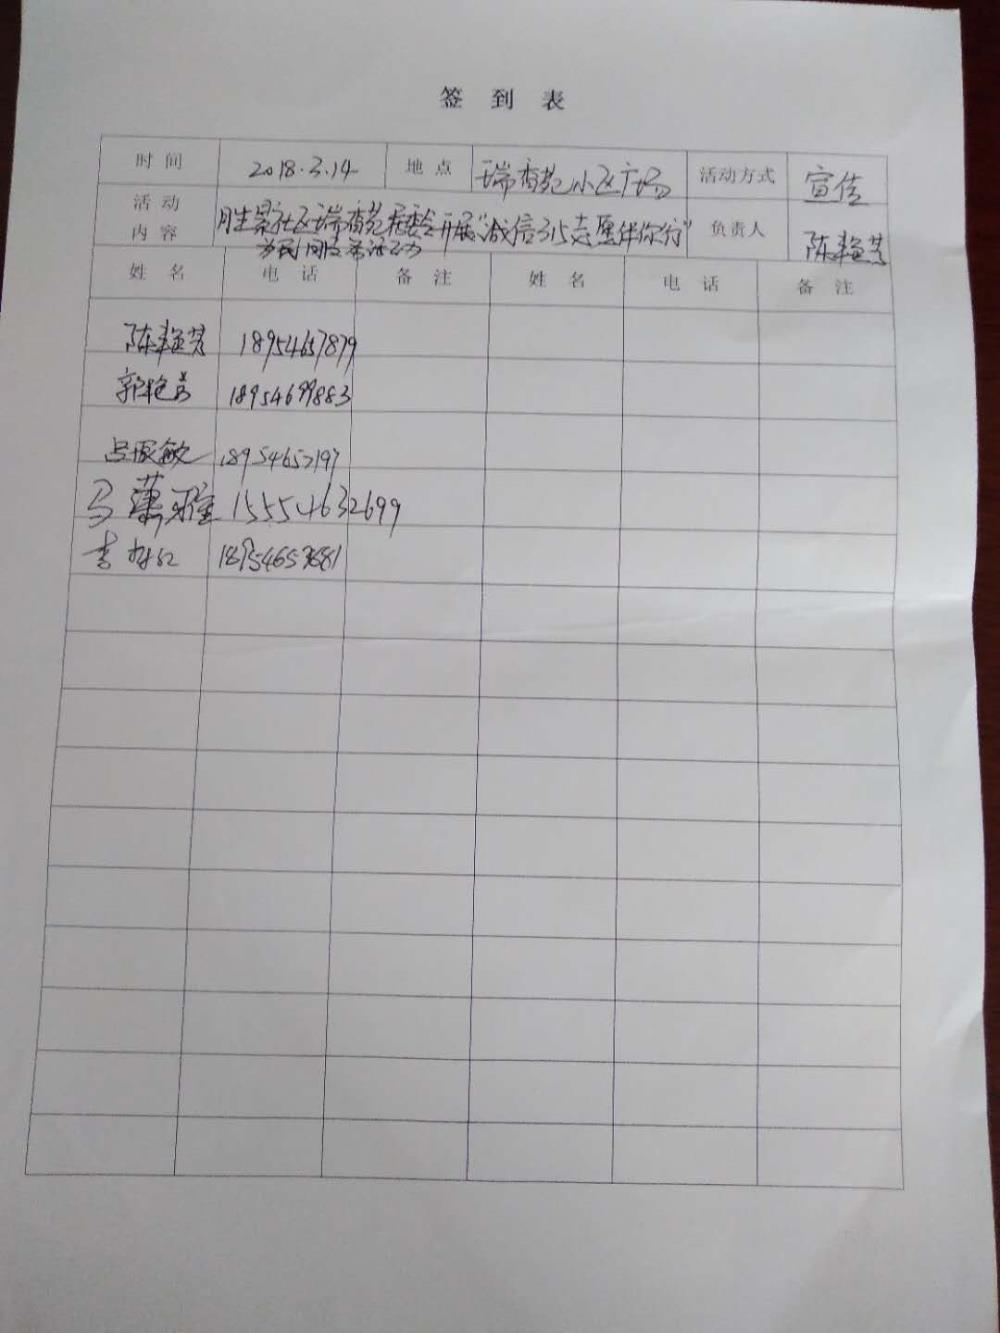 签 到 表
时 间 2018.3.14 地 点 瑞香苑小区广场 活动方式 宣传
活 动 内 容 胜景社区瑞香苑居委会开展"诚信315志愿伴你行" 负责人 陈艳芳
为民服务活动
姓 名 电 话 备 注 姓 名 电 话 备 注
陈艳芳 18954657879
郭艳 18954699883
吕振敏 18954657197
马 雅 15554632699
李 红